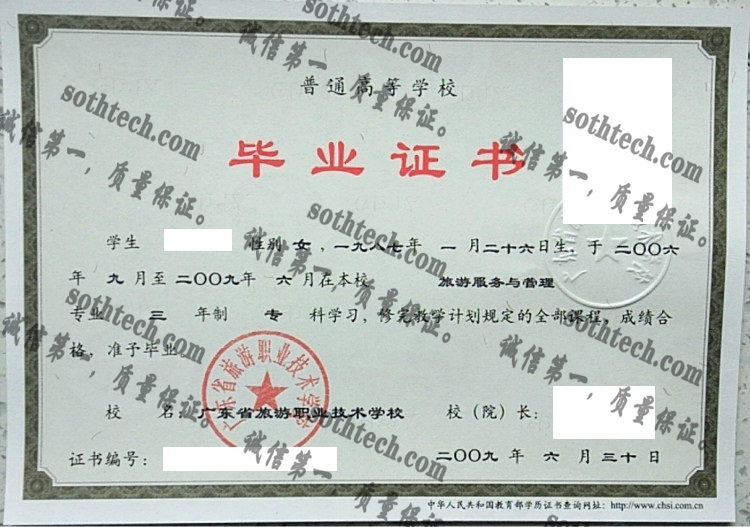 普通高等学校
毕业证书
学生 性别 女，一九八七年 一 月二十六日生，于 二〇〇六
年 九 月至 二〇〇九年 六 月在本校 旅游服务与管理
专业 三 年制 专 科学习，修完教学计划规定的全部课程，成绩合
格，准予毕业
广东省旅游职业技术学校
校 名：广东省旅游职业技术学校 校（院）长：
证书编号： 二〇〇九 年 六 月 三十 日
中华人民共和国教育部学历证书查询网址：http://www.chsi.com.cn
sothtech.com
诚信第一，质量保证。
sothtech.com
诚信第一，质量保证。
sothtech.com
诚信第一，质量保证。
sothtech.com
诚信第一，质量保证。
sothtech.com
诚信第一，质量保证。
sothtech.com
诚信第一，质量保证。
sothtech.com
诚信第一，质量保证。